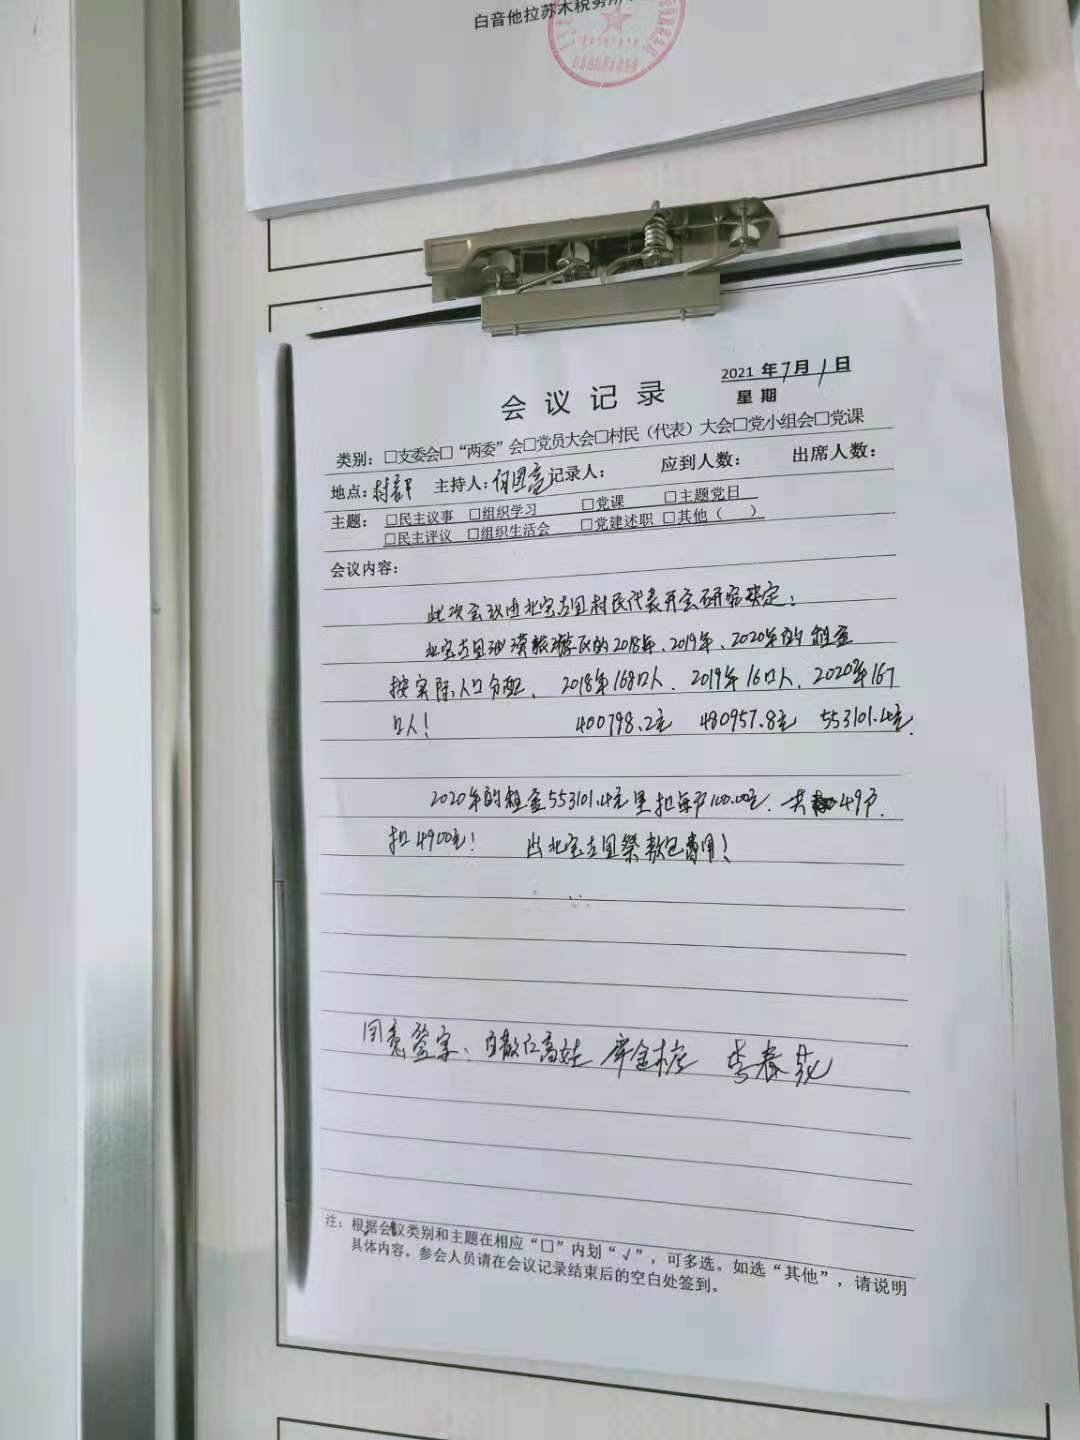 白音他拉苏木税务所
2021 年 7 月 1 日
会 议 记 录
星 期
类别：□支委会□“两委”会□党员大会□村民（代表）大会□党小组会□党课
地点：村部 主持人： 记录人： 应到人数： 出席人数：
主题： □民主议事 □组织学习 □党课 □主题党日
□民主评议 □组织生活会 □党建述职 □其他（ ）
会议内容：
此次会议由北宝古图村民代表开会研究决定：
北宝古图沙漠旅游区的2018年、2019年、2020年的租金
按实际人口分配、2018年168口人、2019年16口人、2020年167
口人！ 400798.2元 480957.8元 553101.4元.
2020年的租金553101.4元里扣每户100.00元. 共 49户.
扣4900元！ 出北宝古图祭敖包费用！
同意签字、 李春
注：根据会议类别和主题在相应“□”内划“√”，可多选。如选“其他”，请说明
具体内容。参会人员请在会议记录结束后的空白处签到。